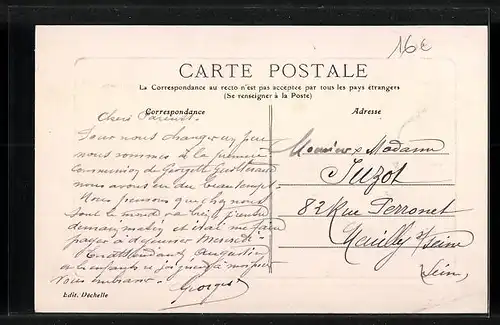 16€
CARTE POSTALE
La Correspondance au recto n'est pas acceptée par tous les pays étrangers
(Se renseigner à la Poste)
Correspondance
Adresse
Chers Parents.
Pour nous changer un peu
nous sommes à la première
Communion de Georgette
nous avons eu du beau temps.
Nous pensons que chez nous
tout le monde va bien
demain matin et
payer à déjeuner
En attendant Augustine
et les enfants se à moi pour
vous embrasser. Georges
Monsieur & Madame
Juzot
82 Rue Perronet
Neuilly s/ Seine
Seine
Edit. Déchelle